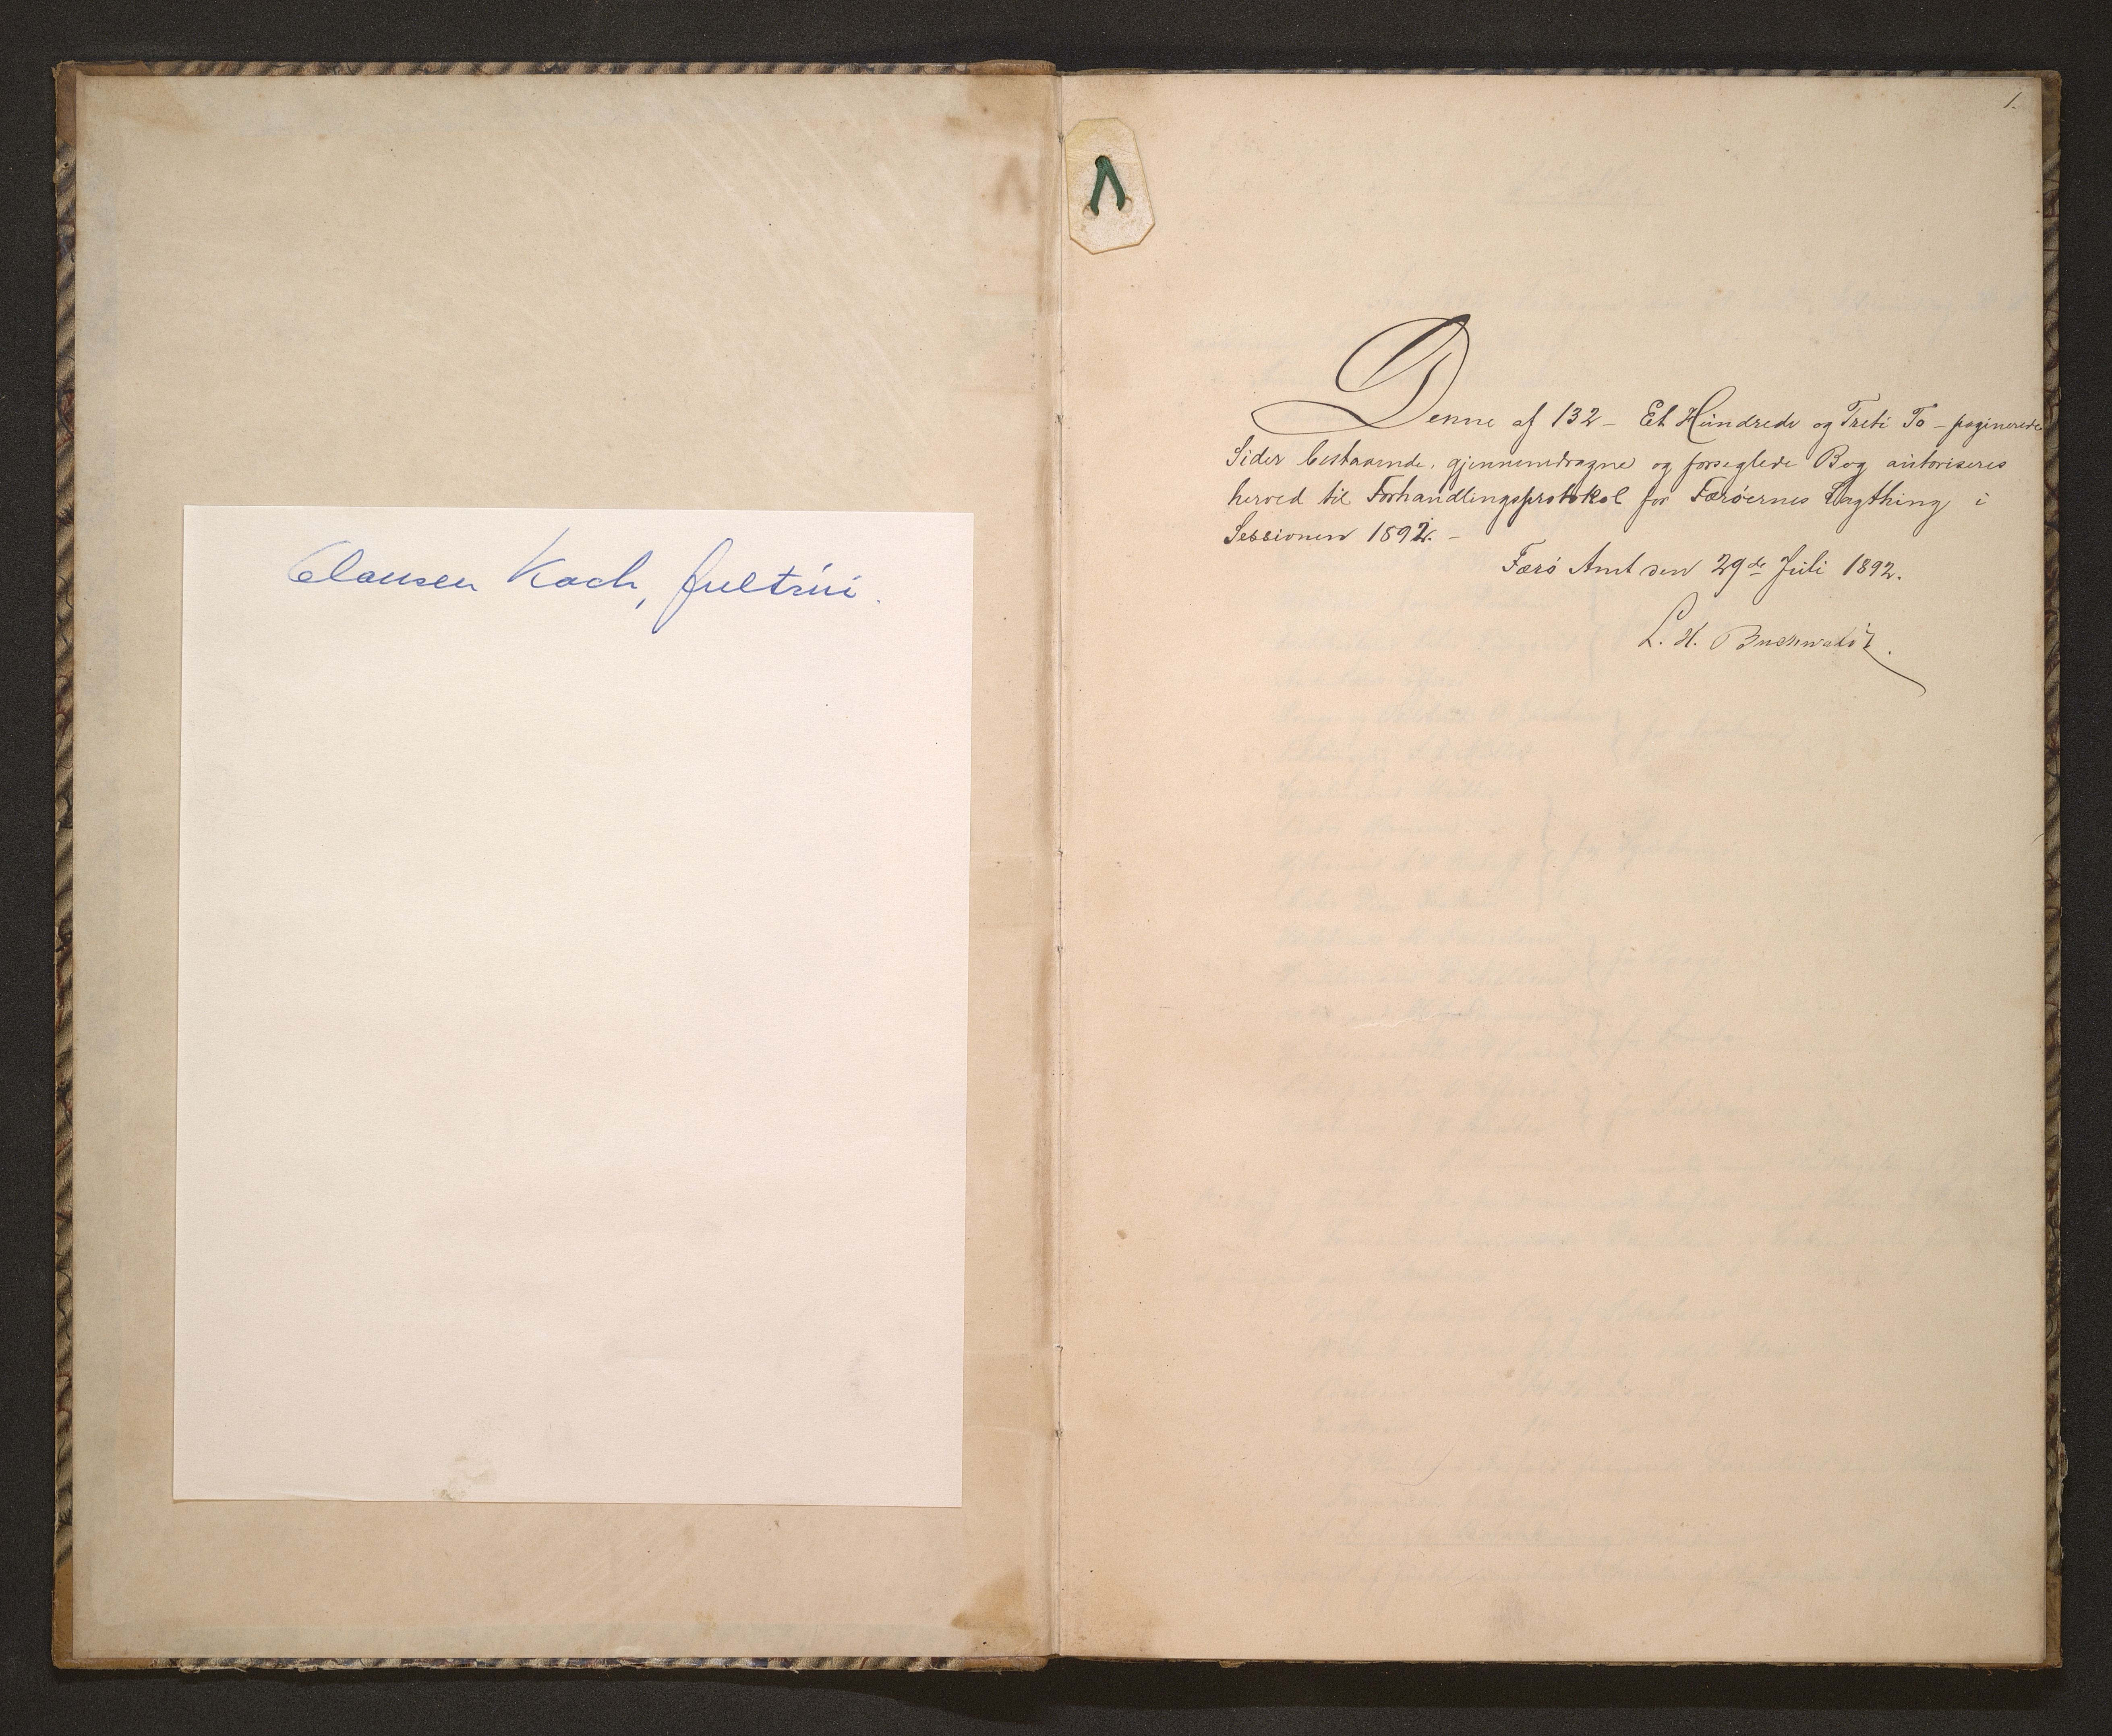 Clausen Koch, fultrúi.
1.
Denne af 132 – Et Hundrede og Treti To – paginerede
Sider bestaaende, gjennemdragne og forseglede Bog autoriseres
herved til Forhandlingsprotokol for Færøernes Lagthing i
Sessionen 1892. –
Færø Amt den 29de Juli 1892.
L. H. Buchwaldt.